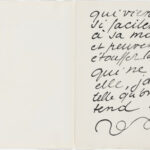 qui vien
si facile
à sa ma
et peuven
étouffer la
qui ne
elle, ja
telle qu'on
tend